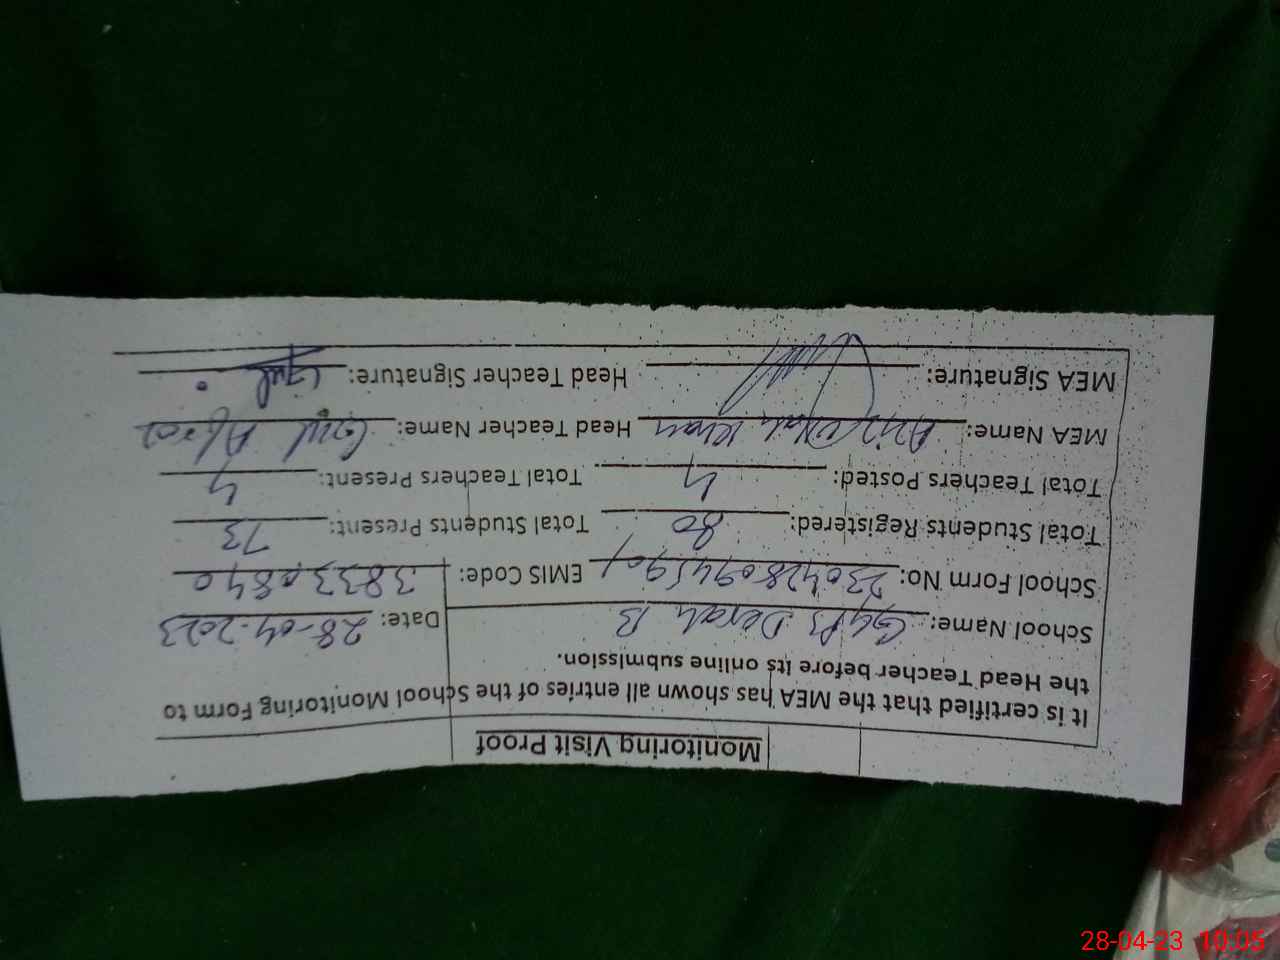 Monitoring Visit Proof
It is certified that the MEA has shown all entries of the School Monitoring Form to
the Head Teacher before its online submission.
School Name: GGPS Derah B Date: 28-04-2023
School Form No: EMIS Code: 38330840
Total Students Registered: 80 Total Students Present: 73
Total Teachers Posted: 4 Total Teachers Present: 4
MEA Name: Khan Head Teacher Name: Gul Afroz
MEA Signature: Head Teacher Signature: Gul
28-04-23 10:05